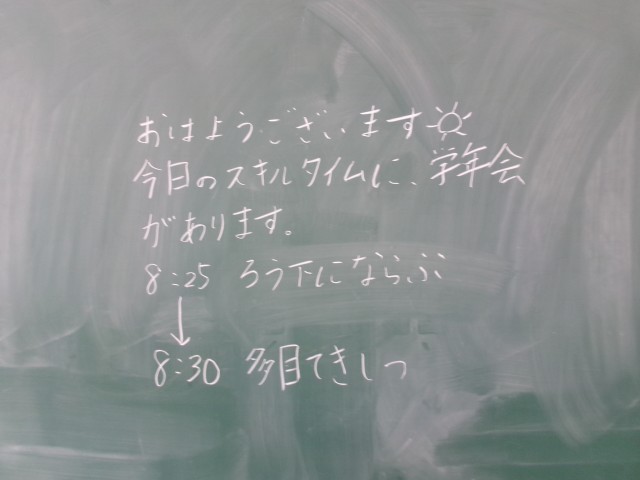 おはようございます
今日のスキルタイムに、学年会
があります。
8:25 ろう下にならぶ
↓
8:30 多目てきしつ